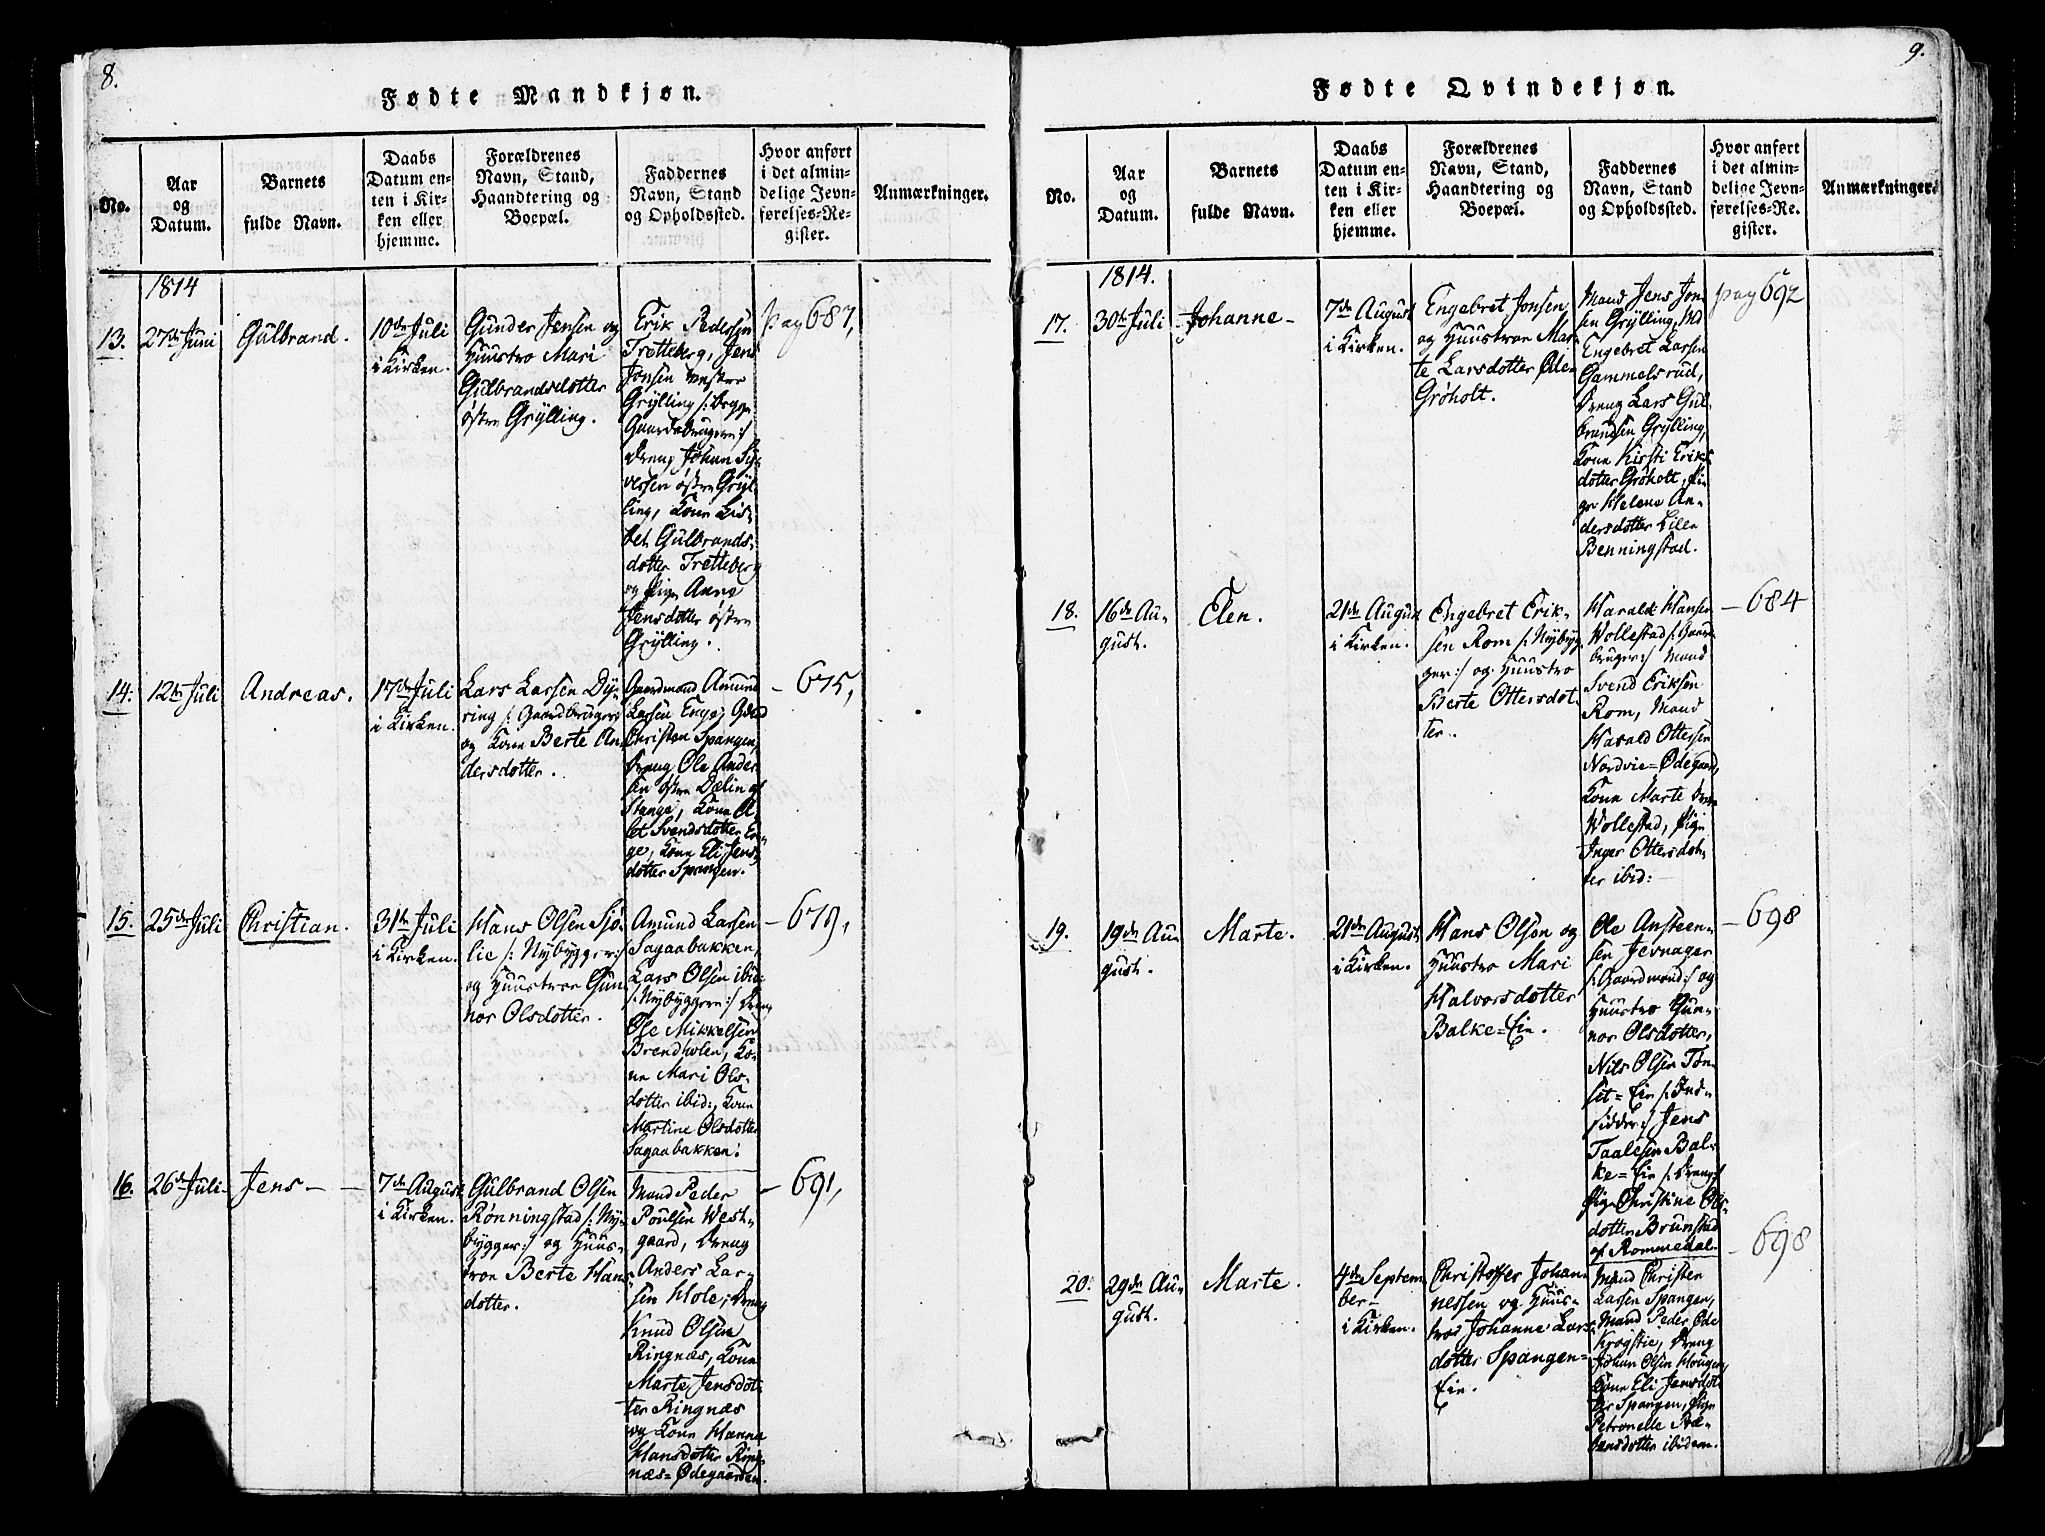 8.
Fødte Mandkjøn.
No.
Aar
og
Datum.
Barnets
fulde Navn.
Daabs
Datum en-
ten i Kir-
ken eller
hjemme.
Forældrenes
Navn, Stand,
Haandtering og
Boepæl.
Faddernes
Navn, Stand
og Opholdssted.
Hvor anført
i det almin-
delige Jevn-
førelses-Re-
gister.
Anmærkninger.
1814
13.
27de Juni
Gulbrand.
10de Juli
i Kirken.
Gunder Jensen og
Huustro Mari
Gulbrandsdotter
østre Grÿlling.
Erik Pedersen
Tretteberg, Jens
Jonsen vestre
Grÿlling /: begge
Gaardbrugere:/
Dreng Johan Si-
versen østre Grÿl-
ling, Kone Lis-
bet Gulbrands-
dotter Tretteberg
og Pige Anne
Jensdotter østre
Grÿlling.
pag 687,
14.
12te Juli
Andreas.
17de Juli
i Kirken.
Lars Larsen Dÿ-
ring /: Gaardbruger:/
og Kone Berte An-
dersdotter.
Gaardmand Amund
Larsen Enge,
Christen Spangen,
Dreng Ole Ander-
sen østre Dælin af
Stange, Kone A-
let Svendsdotter En-
ge, Kone Eli Jens-
dotter Spangen.
- 675,
15.
25de Juli
Christian.
31te Juli
i Kirken.
Hans Olsen Sjø-
lie /: Nÿbÿgger:/
og Huustroe Gun-
nor Olsdotter.
Amund Larsen
Sagaabakken,
Lars Olsen ibid:
/: Nÿbÿggere:/ Dreng
Ole Mikkelsen
Brendholen, Ko-
ne Mari Ols-
dotter ibid:, Kone
Martine Olsdotter
Sagaabakken.
- 679,
16.
26de Juli
Jens
7de August
i Kirken.
Gulbrand Olsen
Rønningstad /: Nÿ-
bÿgger:/ og Huus-
troe Berte Hans-
dotter.
Mand Peder
Poulsen West-
gaard, Dreng
Anders Lar-
sen Hole, Dreng
Knud Olsen
Ringnæs, Kone
Marte Jensdot-
ter Ringnæs
og Kone Hanna
Hansdotter Ring-
næs-Ødegaarden.
- 691,
9.
Fødte Qvindekjøn.
No.
Aar
og
Datum.
Barnets
fulde Navn.
Daabs
Datum en-
ten i Kir-
ken eller
hjemme.
Forældrenes
Navn, Stand,
Haandtering og
Boepæl.
Faddernes
Navn, Stand
og Opholdssted.
Hvor anført
i det almin-
delige Jevn-
førelses-Re-
gister.
Anmærkninger.
1814.
17.
30te Juli
Johanne
7de August
i Kirken.
Engebret Jonsen
og Huustroe Mar-
te Larsdotter Øde-
Grøholt.
Mand Jens Jon-
sen Grÿlling, Md
Engebret Larsen
Gammelsrud,
Dreng Lars Gul-
brandsen Grÿlling,
Kone Kirsti Eriks-
dotter Grøholt, Pi-
ge Helene An-
dersdotter Lille
Benningstad.
pag 692
18.
16de Au-
gust.
Elen.
21de August
i Kirken.
Engebret Erik-
sen Rom /: Nÿbÿg-
ger:/ og Huustro
Berte Ottersdot-
ter.
Harald Hansen
Wollestad /: Gaard-
bruger:/ Mand
Svend Eriksen
Rom, Mand
Harald Ottersen
Nordvie-Ødegaard,
Kone Marte
Wollestad, Pige
Inger Ottersdot-
ter ibid:
- 684
19.
19de Au-
gust.
Marte.
21de August
i Kirken.
Hans Olsen og
Huustro Mari
Halvorsdotter
Balke-Eie.
Ole Ansteen-
sen Jevnager
/: Gaardmand:/ og
Huustro Gun-
nor Olsdotter,
Nils Olsen Tøn-
set-Eie /: Ind-
sidder:/ Jens
Taalesen Bal-
ke-Eie /: Dreng:/
Pige Christine Ols-
dotter Brunstad
af Rommedal.
- 698
20.
29de Au-
gust.
Marte.
4de Septem-
ber
i Kirken.
Christoffer Johan-
nessen og Huus-
troe Johanne Lars-
dotter Spangen-
Eie.
Mand Christen
Larsen Spangen,
Mand Peder Øde
Krogstie, Dreng
Johan Olsen Hougen,
Kone Eli Jensdot-
ter Spangen, Pige
Petronelle
ibidem.
- 698